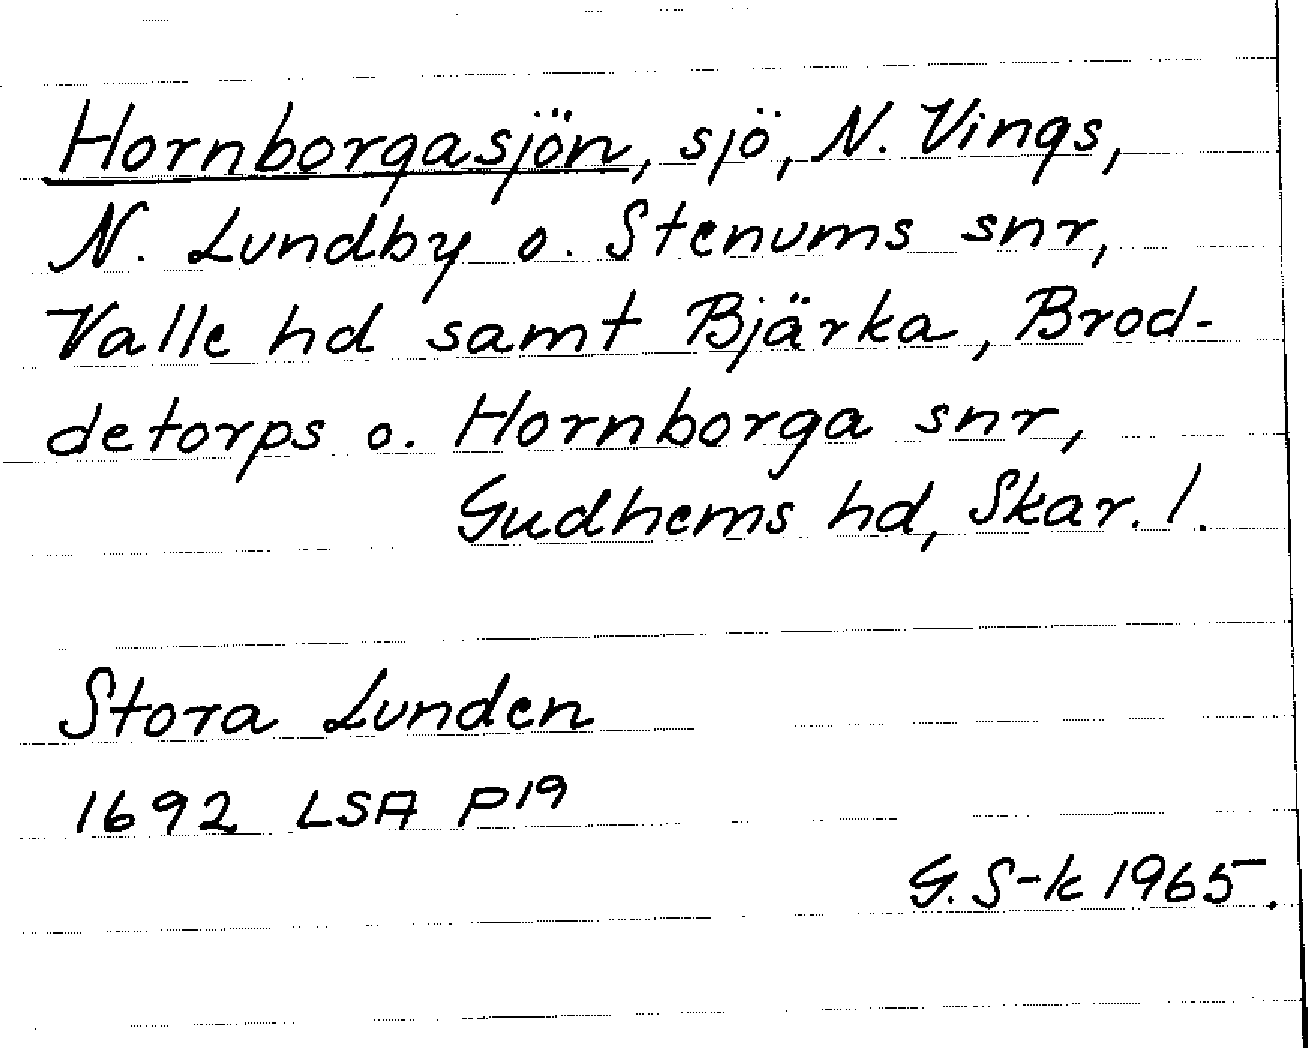 Hornborgasjön, sjö, N. Vings,
N. Lundby o. Stenums snr,
Valle hd samt Bjärka, Brod-
detorps o. Hornborga snr,
Gudhems hd, Skar. l.
Stora Lunden
1692 LSA P19
G. S-k 1965.